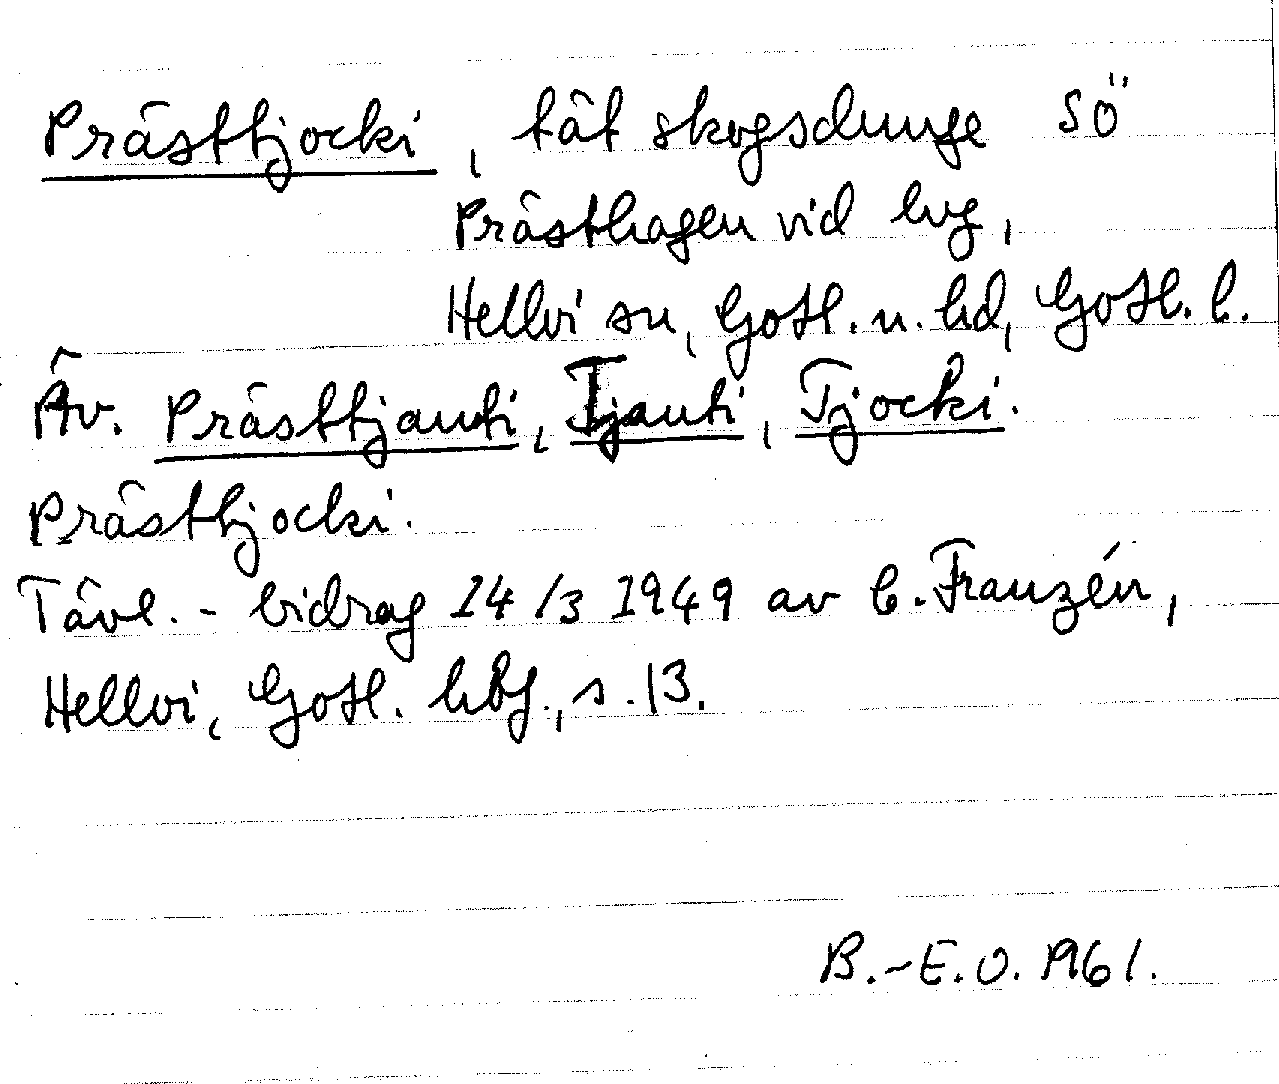 Prästtjocki, tät skogsdunge SÖ
Prästhagen vid lvg,
Hellvi sn, Gotl. n. hd, Gotl. l.
Äv. Prästtjauki, Tjauki, Tjocki.
Prästtjocki.
Tävl.-bidrag 14/3 1949 av C. Franzén,
Hellvi, Gotl. hbf., s. 13.
B.-E.O. 1961.